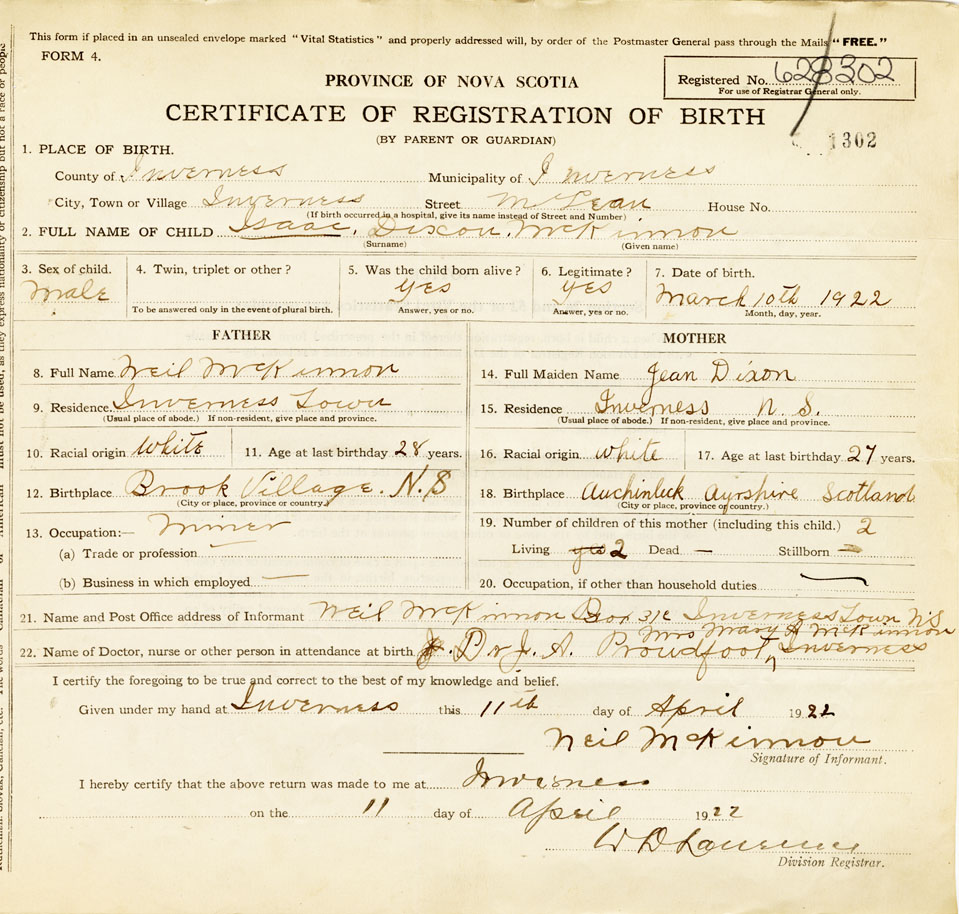 This form if placed in an unsealed envelope marked "Vital Statistics" and properly addressed will, by order of the Postmaster General pass through the Mails "FREE."
FORM 4.
PROVINCE OF NOVA SCOTIA
Registered No. 628302
For use of Registrar General only.
CERTIFICATE OF REGISTRATION OF BIRTH
(BY PARENT OR GUARDIAN)
1302
1. PLACE OF BIRTH.
County of Inverness Municipality of Inverness
City, Town or Village Inverness Street McLean House No.
(If birth occurred in a hospital, give its name instead of Street and Number)
2. FULL NAME OF CHILD Isaac. Dixon. McKinnon
(Surname) (Given name)
3. Sex of child. 4. Twin, triplet or other? 5. Was the child born alive? 6. Legitimate? 7. Date of birth.
Male yes yes March 10th 1922
To be answered only in the event of plural birth. Answer, yes or no. Answer, yes or no. Month, day, year.
FATHER
8. Full Name Neil McKinnon
9. Residence. Inverness Town
(Usual place of abode.) If non-resident, give place and province.
10. Racial origin White 11. Age at last birthday 28 years.
12. Birthplace Brook Village. N.S
(City or place, province or country.)
13. Occupation:— Miner
(a) Trade or profession
(b) Business in which employed —
MOTHER
14. Full Maiden Name Jean Dixon
15. Residence Inverness N. S.
(Usual place of abode.) If non-resident, give place and province.
16. Racial origin white 17. Age at last birthday 27 years.
18. Birthplace Auchinleck Ayrshire Scotland
(City or place, province or country.)
19. Number of children of this mother (including this child.) 2
Living yes 2 Dead — Stillborn —
20. Occupation, if other than household duties —
21. Name and Post Office address of Informant Neil McKinnon Box Inverness Town NS
Mrs Mary A McKinnon
22. Name of Doctor, nurse or other person in attendance at birth Dr J. A. Proudfoot, Inverness
I certify the foregoing to be true and correct to the best of my knowledge and belief.
Given under my hand at Inverness this 11th day of April 1922
Neil McKinnon
Signature of Informant.
I hereby certify that the above return was made to me at Inverness
on the 11 day of April 1922
W D Lawrence
Division Registrar.